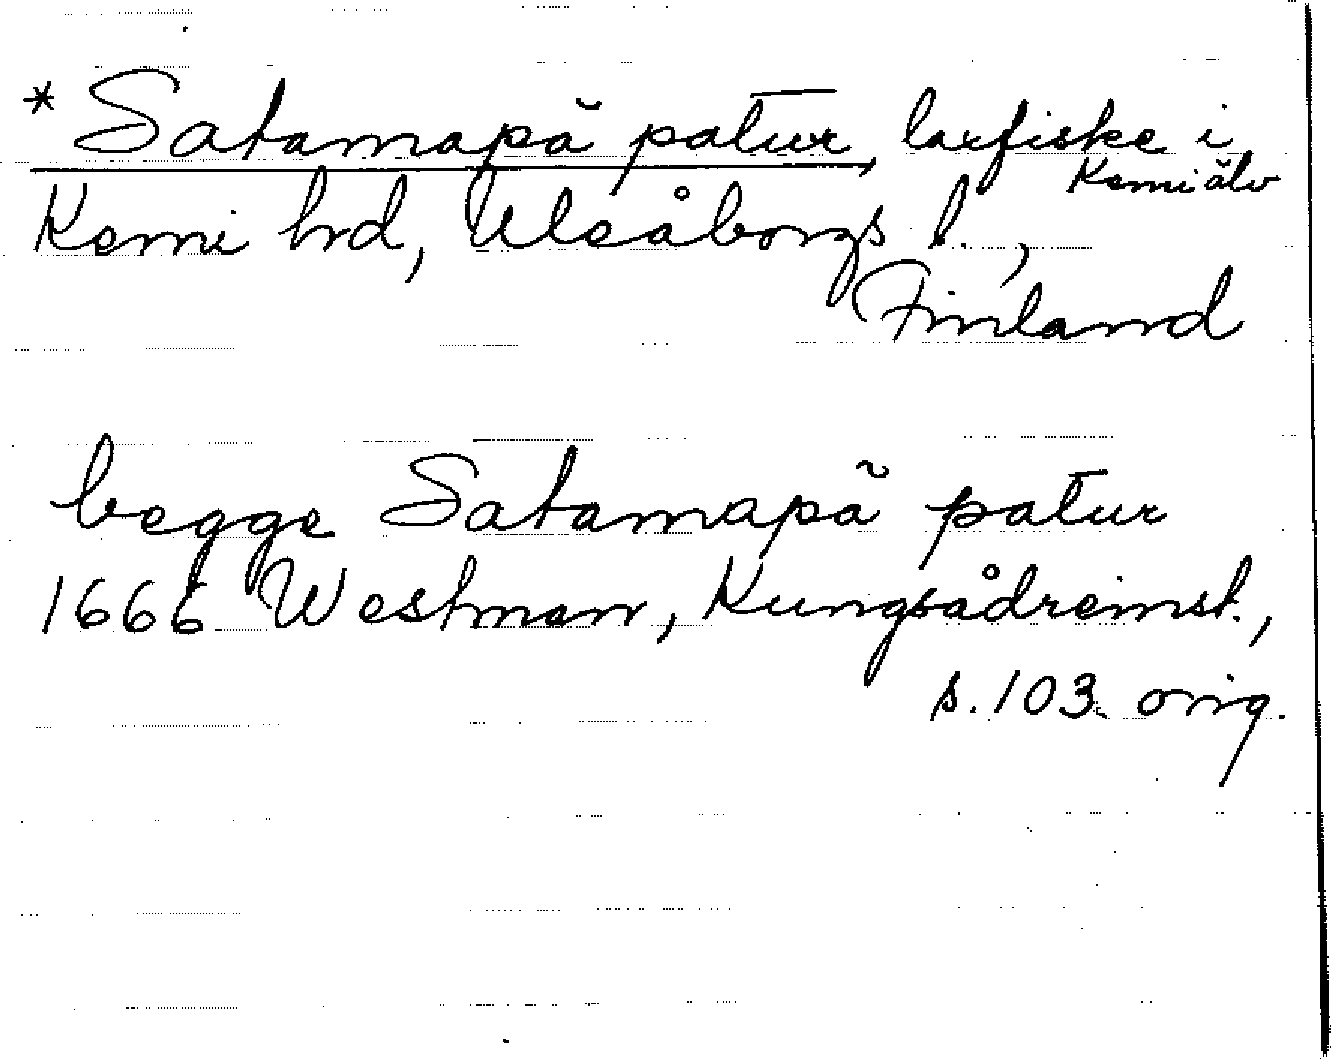 *Satamapä patur, laxfiske i
Kemi älv
Kemi hrd, Uleåborgs l.,
Finland
begge Satamapä patur
1666 Westman, Kungsådreinst.,
s. 103. orig.